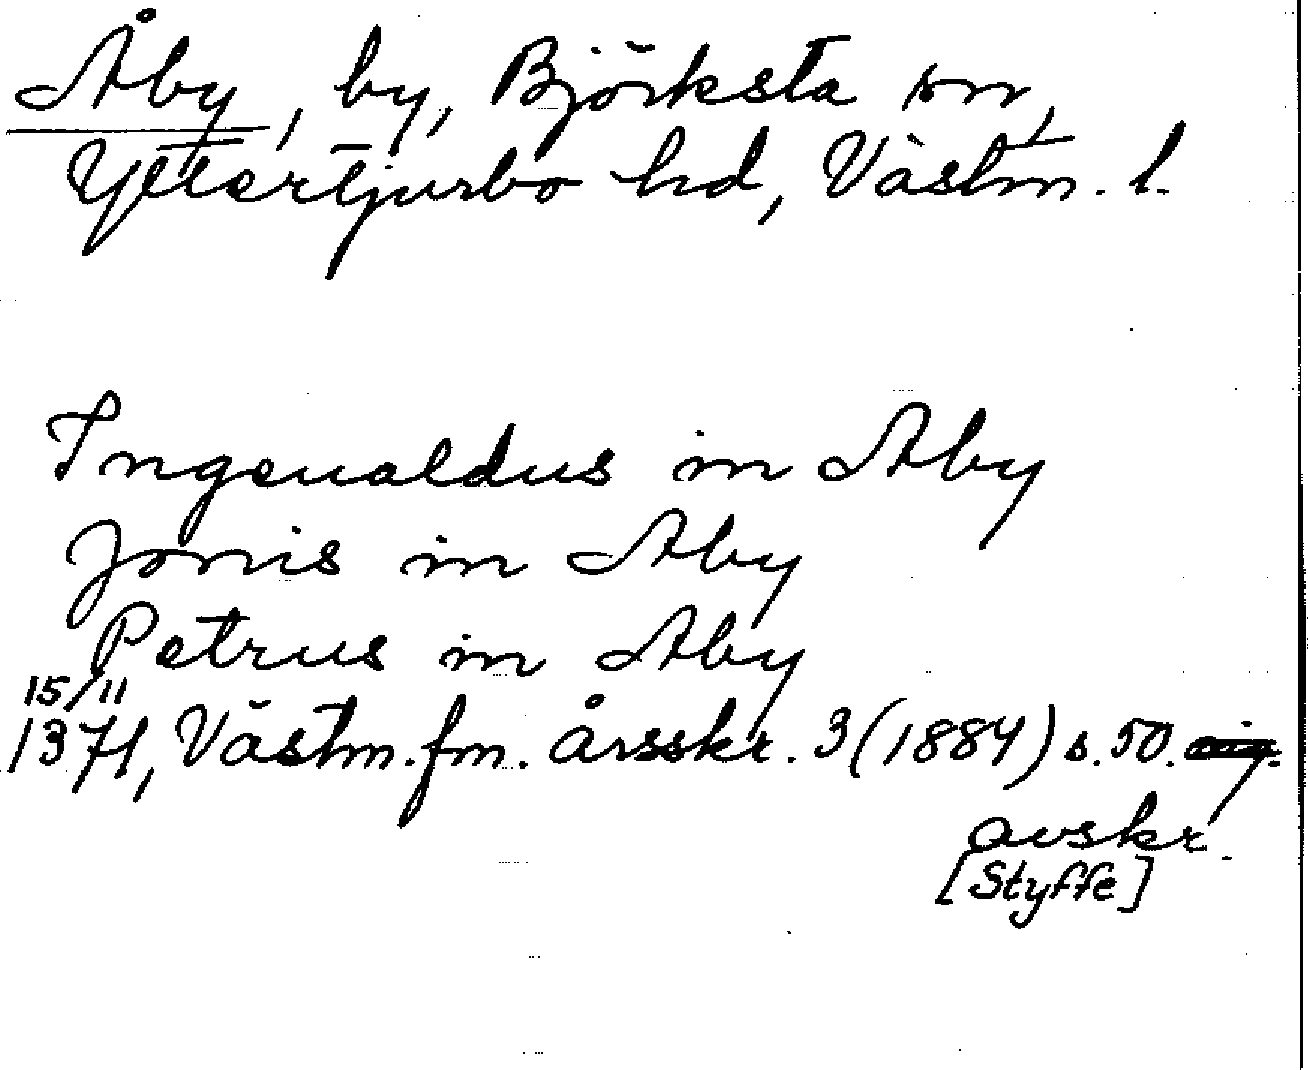 Åby, by, Björksta sn,
Yttertjurbo hd, Västm. l.
Ingeualdus in Aby
Jonis in Aby
Petrus in Aby
15/11
1371, Västm. fm. årsskr. 3 (1884) s. 50.
avskr.
[Styffe]